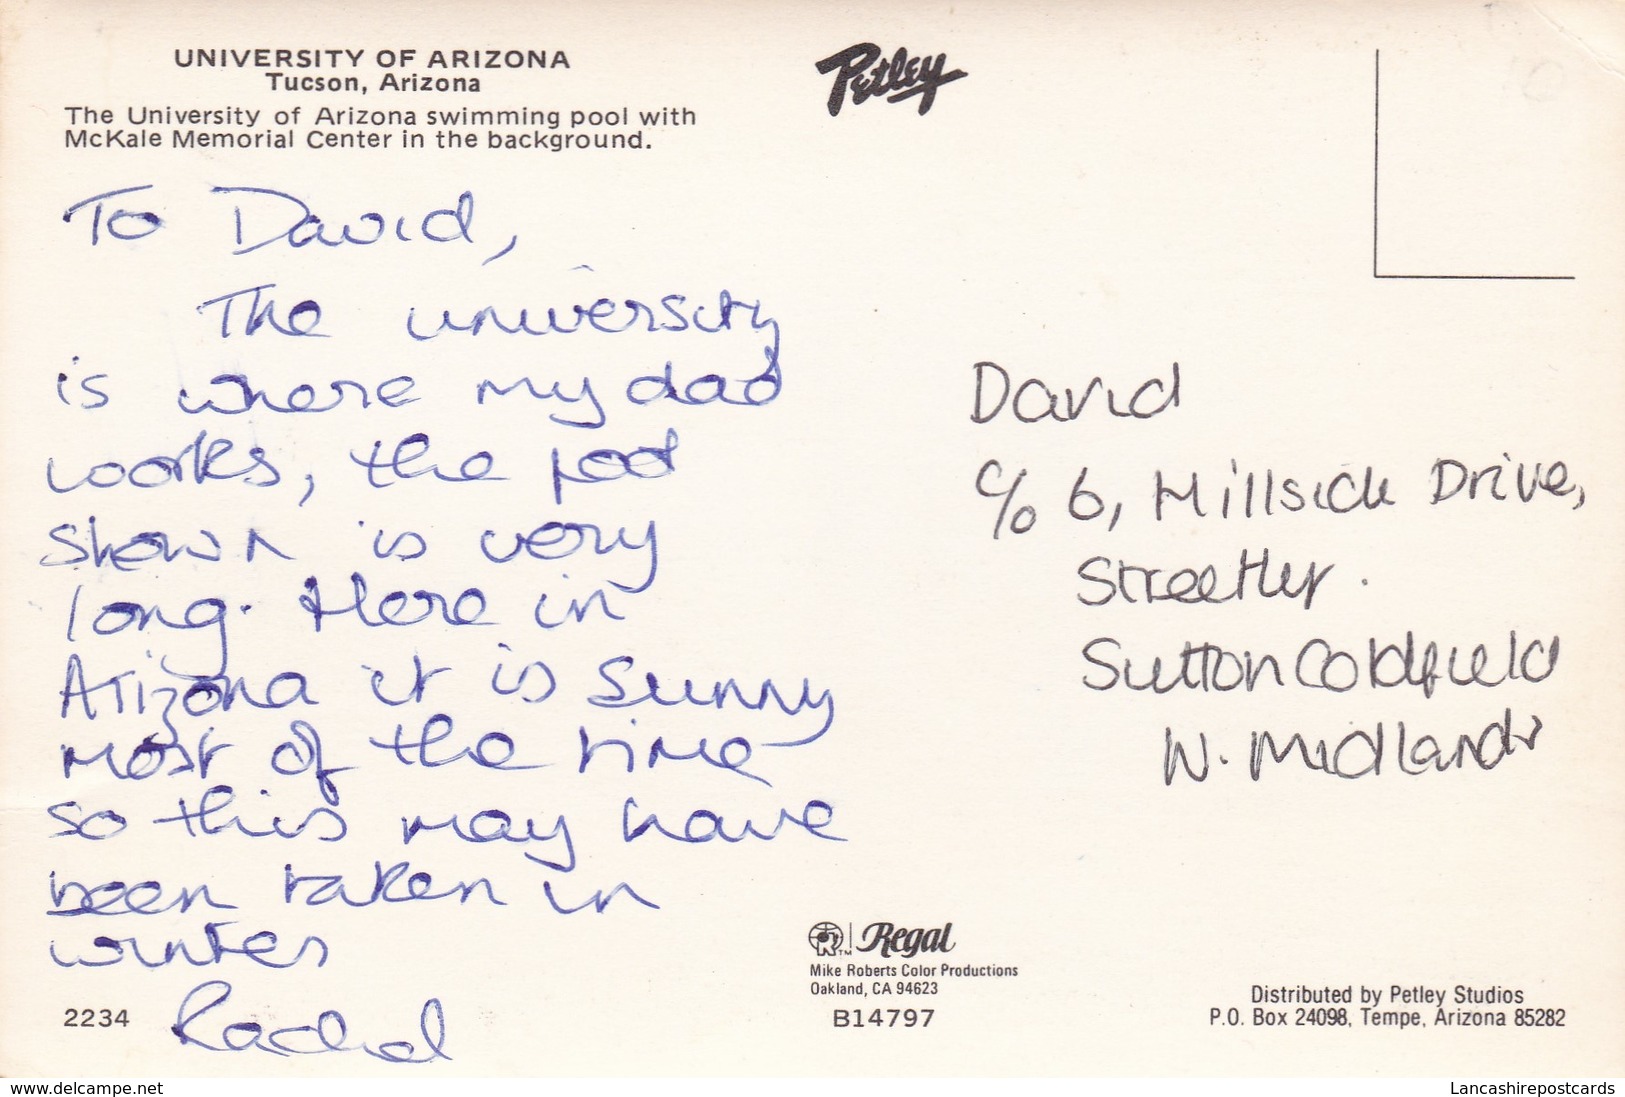 UNIVERSITY OF ARIZONA
Tucson, Arizona
The University of Arizona swimming pool with
McKale Memorial Center in the background.
Petley
To David,
The university
is where my dad
works, the pool
shown is very
long. Here in
Arizona it is sunny
most of the time
so this may have
been taken in
winter
Rachel
2234
David
c/o 6, Millside Drive,
Streetly.
Sutton Coldfield
W. Midlands
Regal
Mike Roberts Color Productions
Oakland, CA 94623
B14797
Distributed by Petley Studios
P.O. Box 24098, Tempe, Arizona 85282
www.delcampe.net
Lancashirepostcards